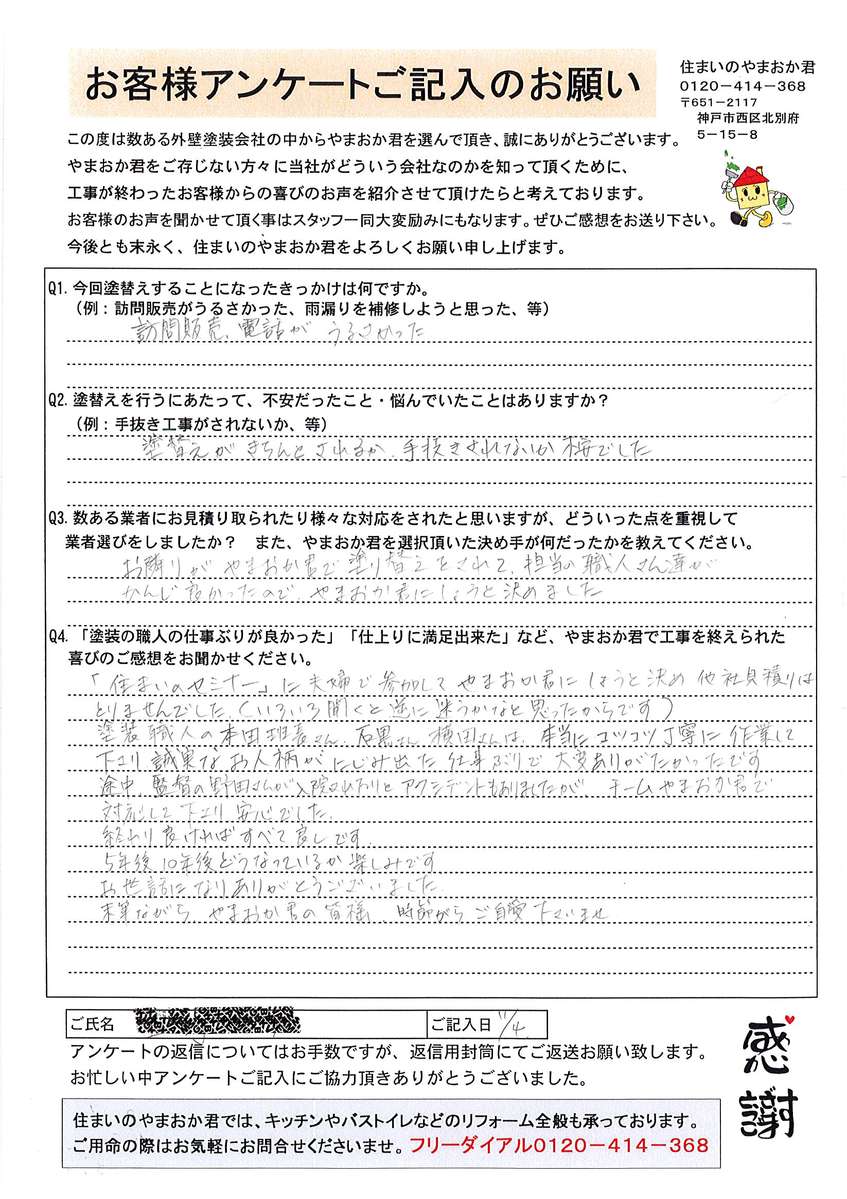 お客様アンケートご記入のお願い
住まいのやまおか君
0120-414-368
〒651-2117
神戸市西区北別府
5-15-8
この度は数ある外壁塗装会社の中からやまおか君を選んで頂き、誠にありがとうございます。
やまおか君をご存じない方々に当社がどういう会社なのかを知って頂くために、
工事が終わったお客様からの喜びのお声を紹介させて頂けたらと考えております。
お客様のお声を聞かせて頂く事はスタッフ一同大変励みにもなります。ぜひご感想をお送り下さい。
今後とも末永く、住まいのやまおか君をよろしくお願い申し上げます。
Q1. 今回塗替えすることになったきっかけは何ですか。
（例：訪問販売がうるさかった、雨漏りを補修しようと思った、等）
訪問販売、電話が うるさかった
Q2. 塗替えを行うにあたって、不安だったこと・悩んでいたことはありますか？
（例：手抜き工事がされないか、等）
塗替えが きちんと されるか、手抜きされないか 不安でした
Q3. 数ある業者にお見積り取られたり様々な対応をされたと思いますが、どういった点を重視して
業者選びをしましたか？ また、やまおか君を選択頂いた決め手が何だったかを教えてください。
お隣りが やまおか君で 塗り替えをされて、担当の職人さん達が
かんじ良かったので、やまおか君にしようと決めました
Q4. 「塗装の職人の仕事ぶりが良かった」「仕上りに満足出来た」など、やまおか君で工事を終えられた
喜びのご感想をお聞かせください。
「住まいのセミナー」に夫婦で参加して やまおか君に しようと決め 他社見積りは
とりませんでした（いろいろ聞くと逆に迷うかなと思ったからです）
塗装職人の本田班長さん、石黒さん 横田さんは、本当にコツコツ丁寧に作業して
下さり 誠実なお人柄がにじみ出た 仕事ぶりで 大変ありがたかったです
途中、監督の野田さんが入院されたりと アクシデントもありましたが チームやまおか君で
対応して下さり 安心でした。
終わり良ければすべて良しです。
5年後、10年後どうなっているか 楽しみです
お世話になりありがとうございました。
末筆ながら やまおか君の皆様、時節がら ご自愛 下さいませ
ご氏名
ご記入日 11/4
アンケートの返信についてはお手数ですが、返信用封筒にてご返送お願い致します。
お忙しい中アンケートご記入にご協力頂きありがとうございました。
感謝
住まいのやまおか君では、キッチンやバストイレなどのリフォーム全般も承っております。
ご用命の際はお気軽にお問合せくださいませ。フリーダイアル0120-414-368